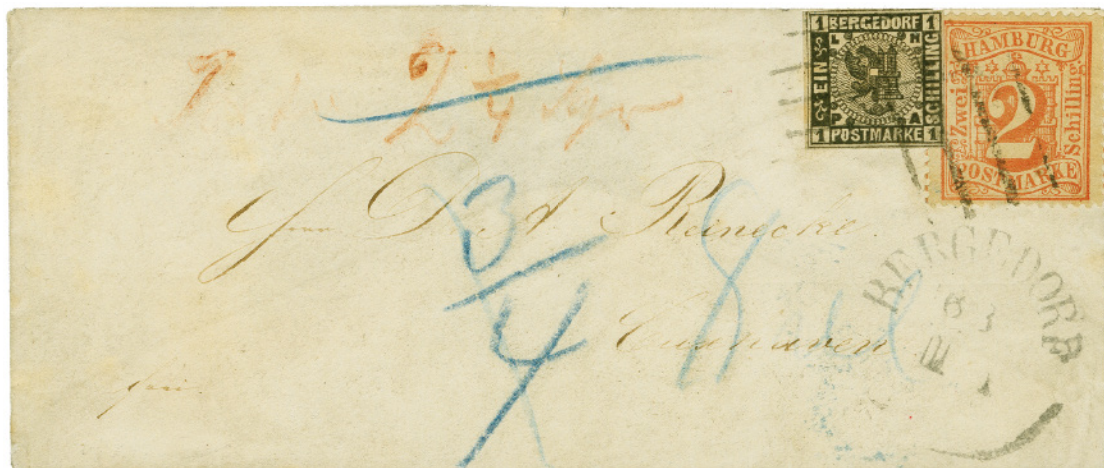 1 BERGEDORF 1
L H
EIN
SCHILLING
P A
1 POSTMARKE 1
HAMBURG
Zwei
2
Schilling
POSTMARKE
2 1/4 Sgr
3/4
Herrn D. A. Reinecke.
Cuxhaven
frei
BERGEDORF